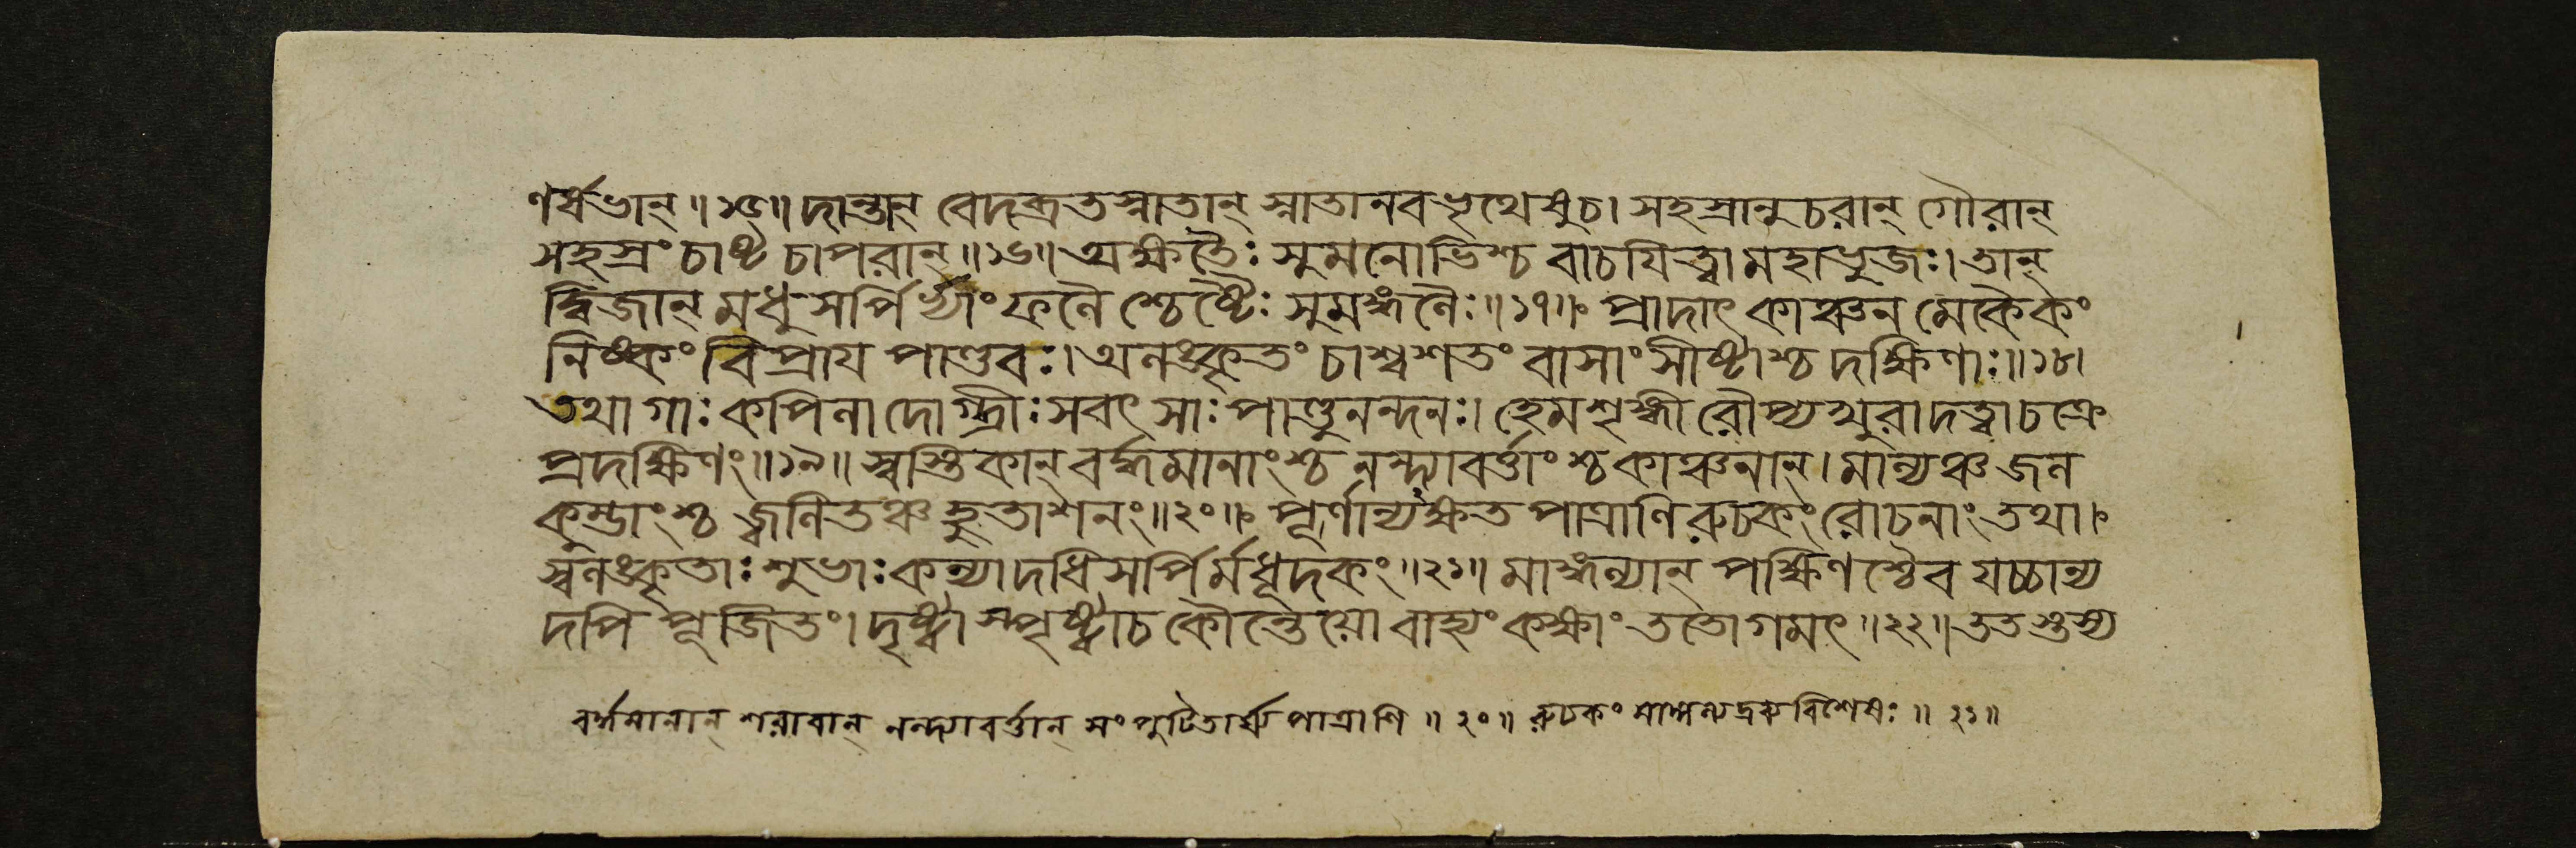 ণর্ষভান্॥১৫॥দান্তান্ বেদব্রতস্নাতান্ স্নাতানবভৃথেষুচ। সহস্রানুচরান্ গৌরান্
সহস্রং চাষ্ট চাপরান্॥১৬॥অক্ষতৈঃ সুমনোভিশ্চ বাচযিত্বা মহাভুজঃ। তান্
দ্বিজান্ মধুসর্পির্ভ্যাং ফলৈ শ্রেষ্ঠৈঃ সুমঙ্গলৈঃ॥১৭॥ প্রাদাৎ কাঞ্চন মেকৈকং
নিষ্কং বিপ্রায পাণ্ডবঃ। অলঙ্কৃতং চাশ্বশতং বাসাংসীষ্টাশ্চ দক্ষিণাঃ॥১৮।
তথা গাঃ কপিলা দোগ্ধ্রীঃ সবৎসাঃ পাণ্ডুনন্দনঃ। হেমশৃঙ্গী রৌপ্যখুরা দত্বা চক্রে
প্রদক্ষিণং॥১৯॥ স্বস্তিকান্ বর্দ্ধমানাংশ্চ নন্দ্যাবর্ত্তাংশ্চ কাঞ্চনান্। মাল্যঞ্চ জল
কুম্ভাংশ্চ জ্বলিতঞ্চ হুতাশনং॥২০॥ পূর্ণান্যক্ষত পাত্রাণি রুচকং রোচনাং তথা।
স্বলঙ্কৃতাঃ শুভাঃ কন্যা দধিসর্পির্মধূদকং॥২১॥ মাঙ্গল্যান্ পক্ষিণশ্চৈব যচ্চান্য
দপি পূজিতং। দৃষ্ট্বা স্পৃষ্ট্বাচ কৌন্তেয়ো বাহ্যং কক্ষাং ততোগমৎ॥২২॥ ততস্তস্য
বর্দ্ধমানান্ শরাবান্ নন্দ্যাবর্ত্তান্ সংপুটিতার্ঘ্য পাত্রাণি॥২০॥ রুচকং মাঙ্গল্যদ্রব্যবিশেষঃ॥২১॥